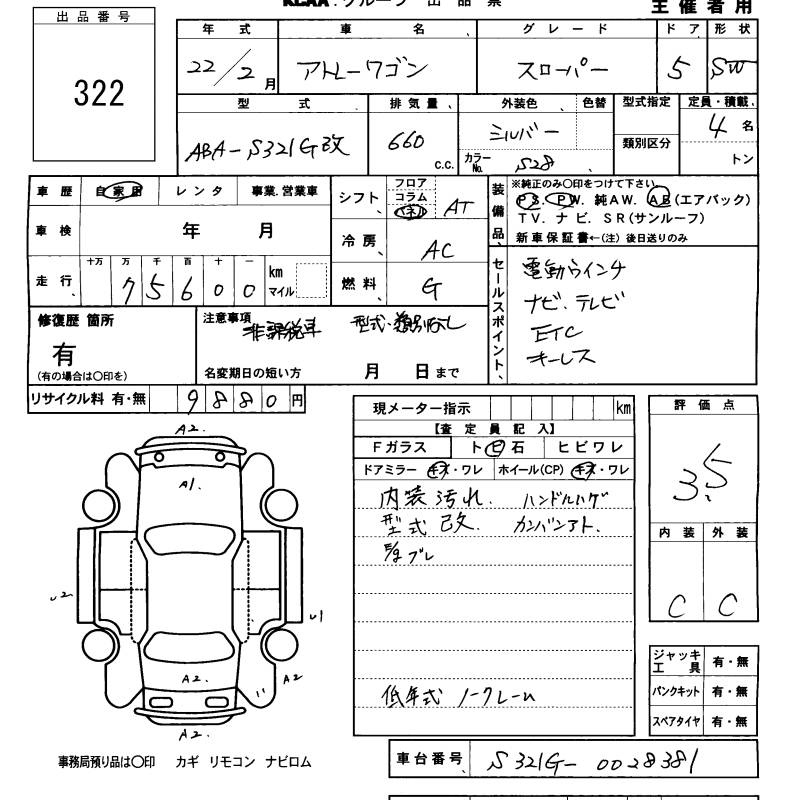 KCAA.グループ 出 品 票
主 催 者 用
出 品 番 号
322
年 式 車 名 グ レ ー ド ド ア 形 状
22/2月 アトレーワゴン スローパー 5 SW
型 式 排 気 量 外装色 色替 型式指定 定員・積載
ABA-S321G改 660 c.c. シルバー 4 名
カラーNo. S28 類別区分 トン
車 歴 自家用 レ ン タ 事業.営業車
車 検 年 月
走 行 十万 万 千 百 十 一 km マイル
7 5 6 0 0
シフト フロア コラム パネル AT
冷 房 AC
燃 料 G
装備品 ※純正のみ〇印をつけて下さい。
PS. PW. 純AW. AB(エアバック)
TV. ナ ビ. SR(サンルーフ)
新 車 保 証 書←(注) 後日送りのみ
セールスポイント
電動ウインチ
ナビ.テレビ
ETC
キーレス
修復歴 箇所
有
(有の場合は〇印を)
注意事項 非課税車 型式・類別なし
名変期日の短い方 月 日まで
リサイクル料 有・無 9 8 8 0 円
A2.
A1.
A2
A2.
A2.
U2
U1
事務局預り品は〇印 カギ リモコン ナビロム
現メーター指示 km
【査 定 員 記 入】
Fガラス ト ビ 石 ヒビワレ
ドアミラー キズ・ワレ ホイール(CP) キズ・ワレ
内装汚れ. ハンドルハゲ
型式改. カンバンアト.
低年式 ノークレーム
評 価 点
3.5
内 装 外 装
C C
ジャッキ工 具 有・無
パンクキット 有・無
スペアタイヤ 有・無
車台番号 S321G-0028381